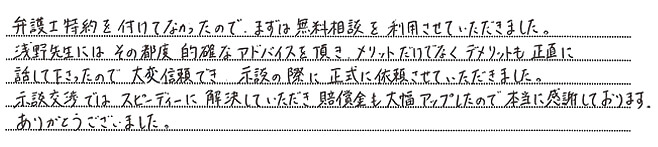 弁護士特約を付けてなかったので、まずは無料相談を利用させていただきました。
浅野先生にはその都度 的確なアドバイスを頂き メリットだけでなく デメリットも正直に
話して下さったので 大変信頼でき 示談の際に 正式に依頼させていただきました。
示談交渉では スピーディーに 解決していただき 賠償金も大幅アップしたので 本当に感謝しております。
ありがとうございました。